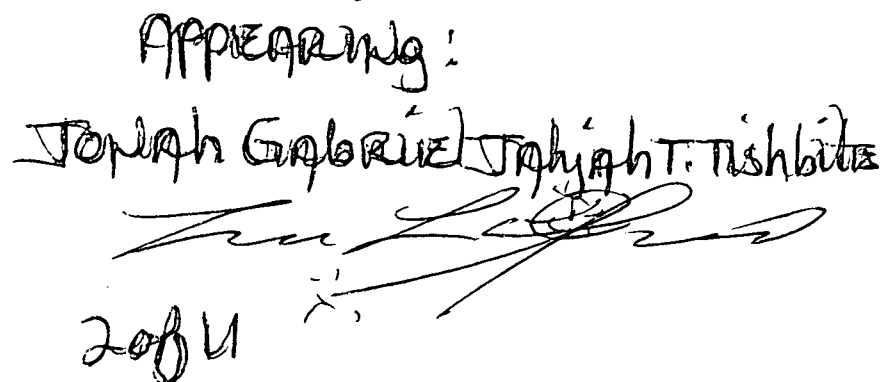 APPEARINg:
JONAh GAbRiEl JAhjAh T. Tishbite
2 of 4